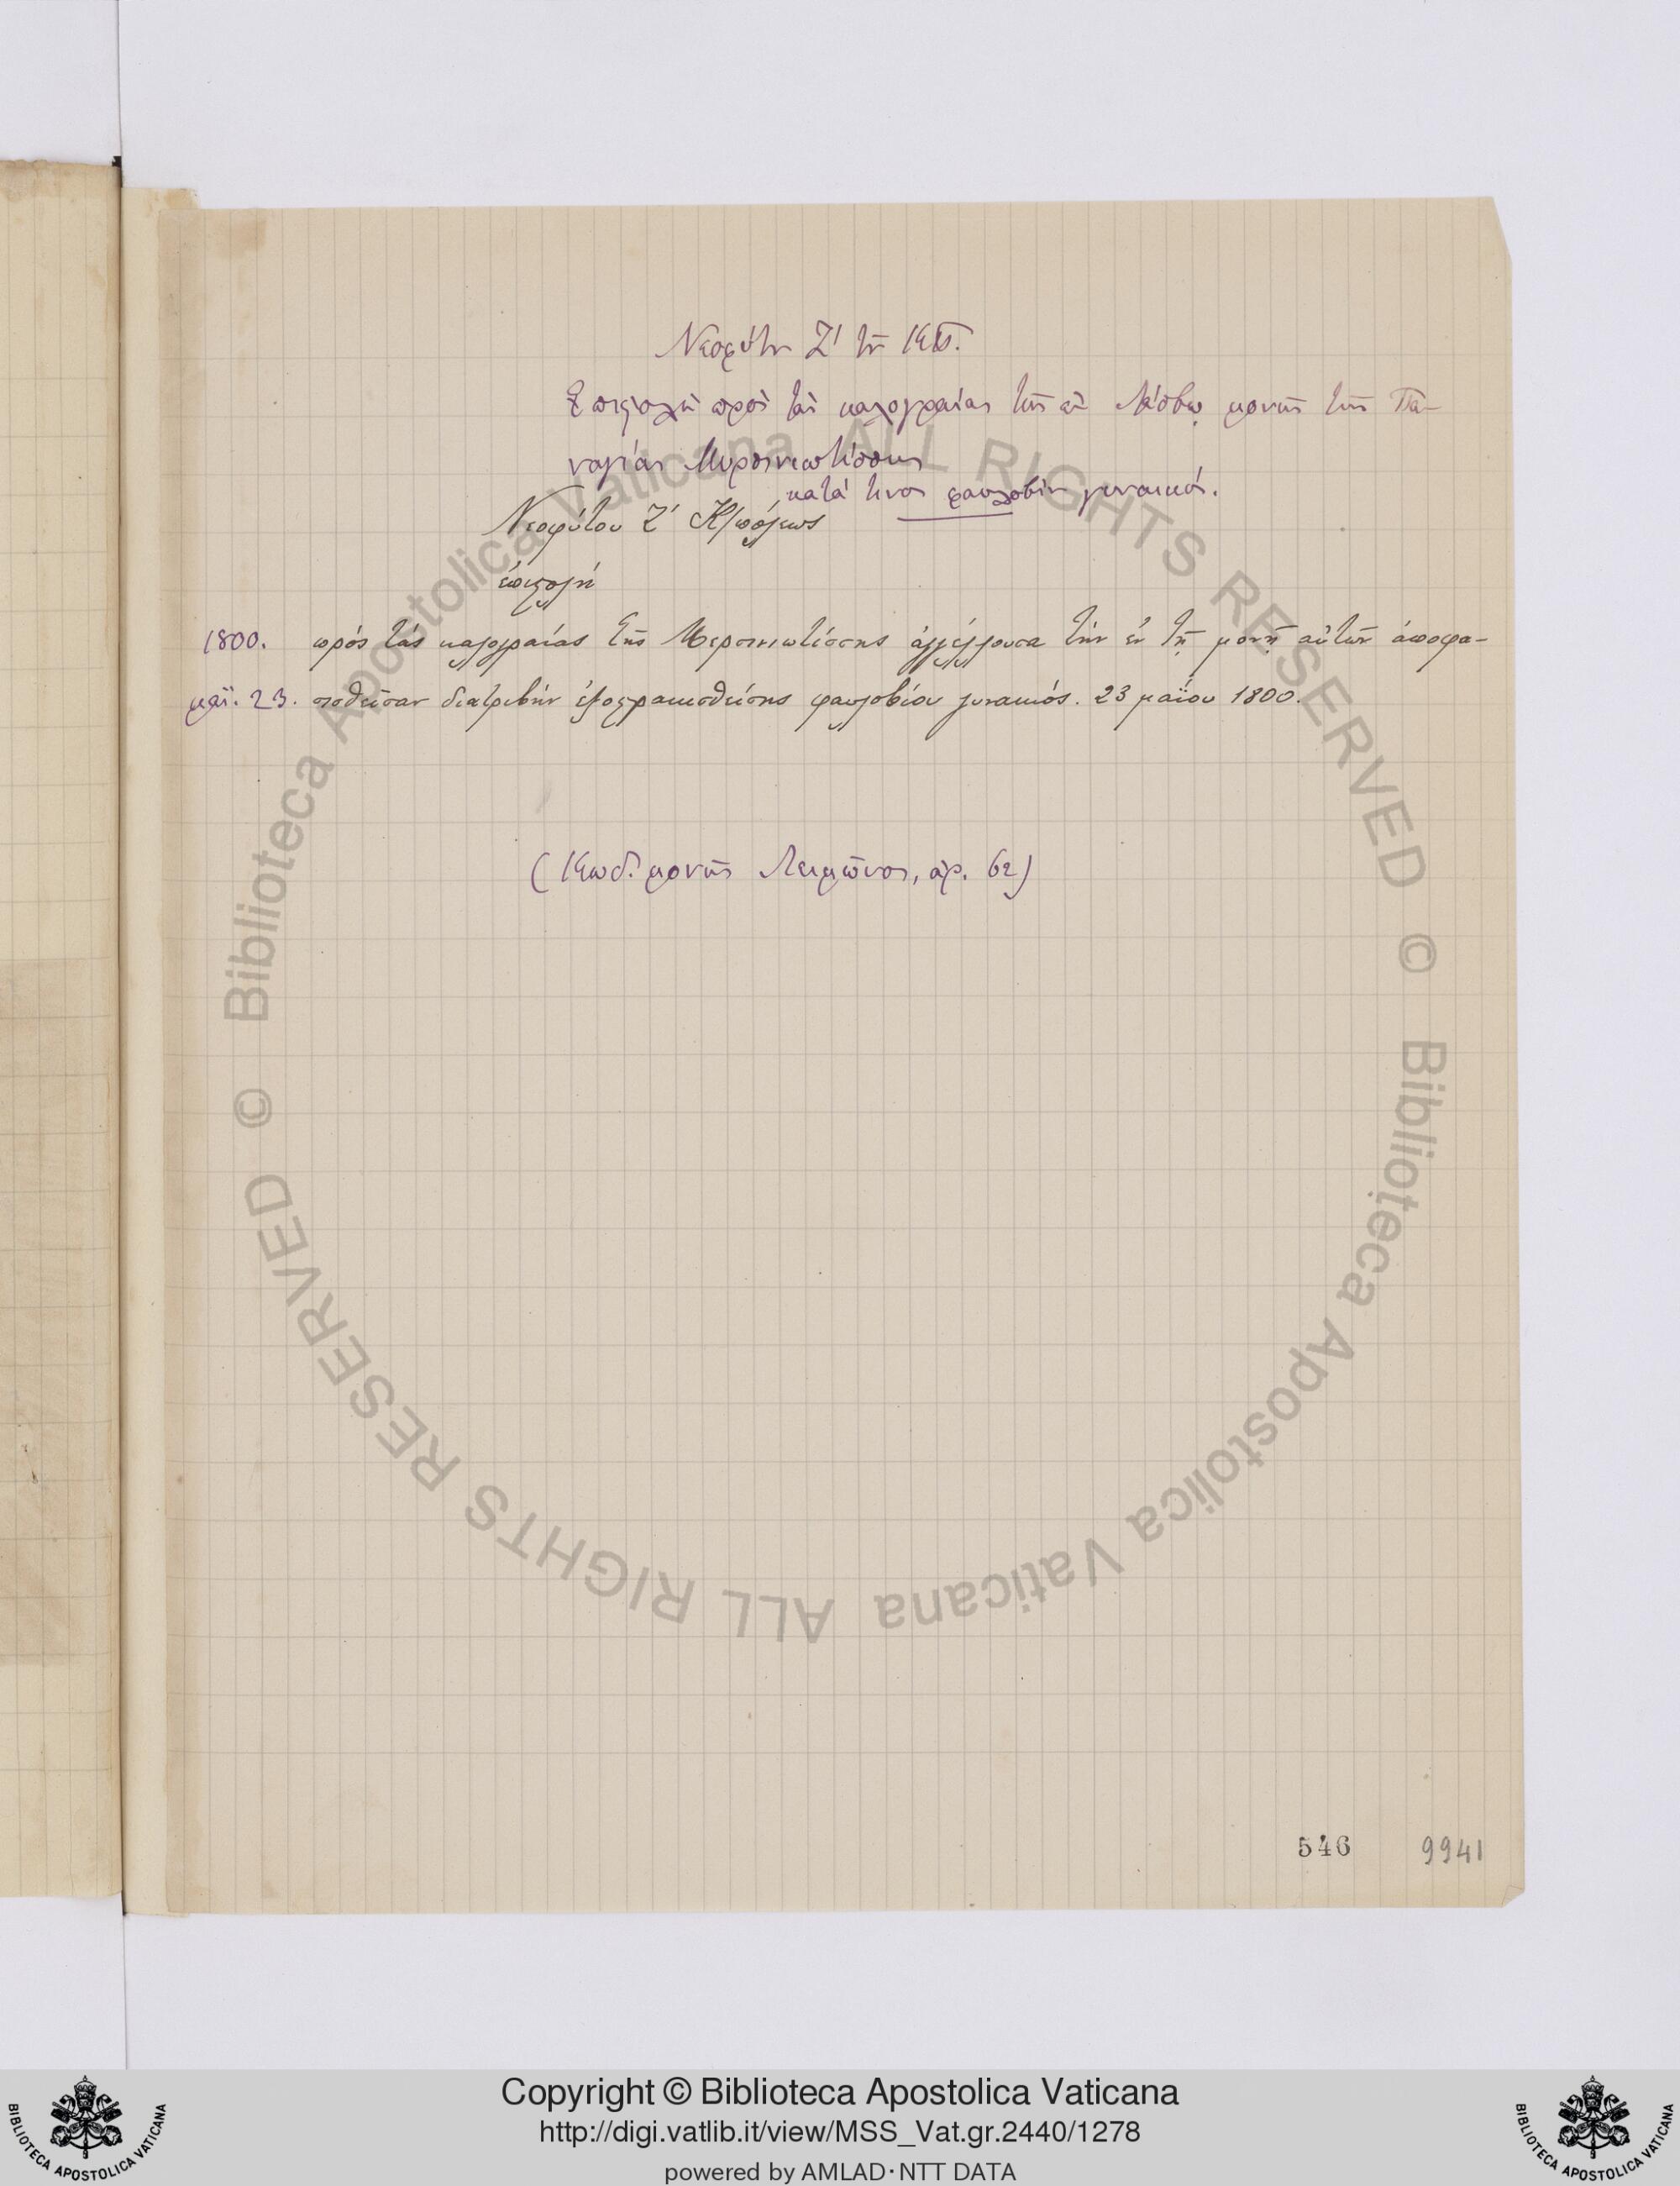 Νεοφύτου Ζ' τοῦ
Ἐπιστολὴ πρὸς τὰς καλογραίας τῆς ἐν Λέσβῳ μονῆς τῆς Πα-
ναγίας Μυρσινιωτίσσης
κατά τινος φαυλοβίου γυναικός.
Νεοφύτου Ζ' Κ/πόλεως
ἐπιστολή
1800. πρός τάς καλογραίας τῆς Μερσινιωτίσσης ἀγγέλλουσα τήν ἐν τῇ μονῇ αὐτῶν ἀποφα-
μαΐ. 23. σισθεῖσαν διατριβήν ἐξοστρακισθείσης φαυλοβίου γυναικός. 23 μαΐου 1800.
(Κωδ. μονῆς Λειμῶνος, ἀρ. 62)
546 9941
© Biblioteca Apostolica Vaticana ALL RIGHTS RESERVED
© Biblioteca Apostolica Vaticana ALL RIGHTS RESERVED
Copyright © Biblioteca Apostolica Vaticana
http://digi.vatlib.it/view/MSS_Vat.gr.2440/1278
powered by AMLAD·NTT DATA
BIBLIOTECA APOSTOLICA VATICANA
BIBLIOTECA APOSTOLICA VATICANA